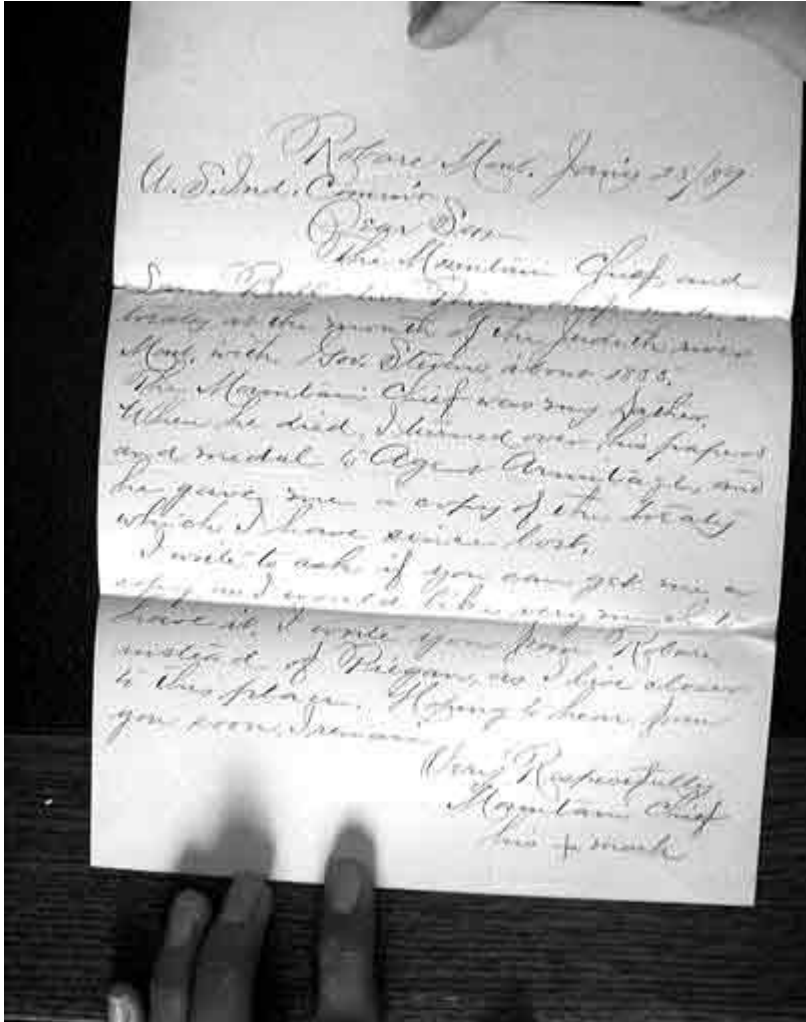 Robare Mont. Jan'y 23/89
U. S. Ind. Comm'r
Dear Sir
The Mountain Chief, and
Bull two Piegan chiefs made a
treaty at the mouth of the Judith river
Mont. with Gov. Stevens about 1855.
The Mountain Chief was my father.
When he died, I turned over his papers
and medal to Agent Armitage, and
he gave me a copy of the treaty
which I have since lost.
I write to ask if you can get me a
copy as I would like very much to
have it. I write you from Robare
instead of Piegan, as I live closer
to this place. Hoping to hear from
you soon, I remain
Very Respectfully
Mountain Chief
his + mark